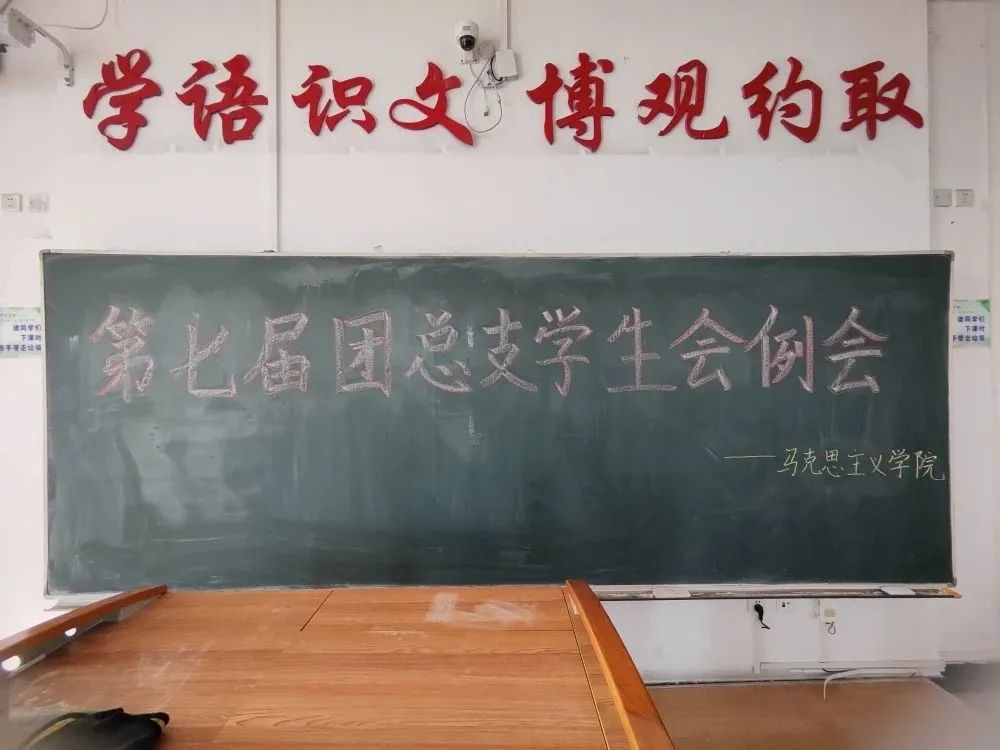 学语识文 博观约取
第七届团总支学生会例会
——马克思主义学院
请同学们
下课时
手带走垃圾
请同学们
下课时
手带走垃